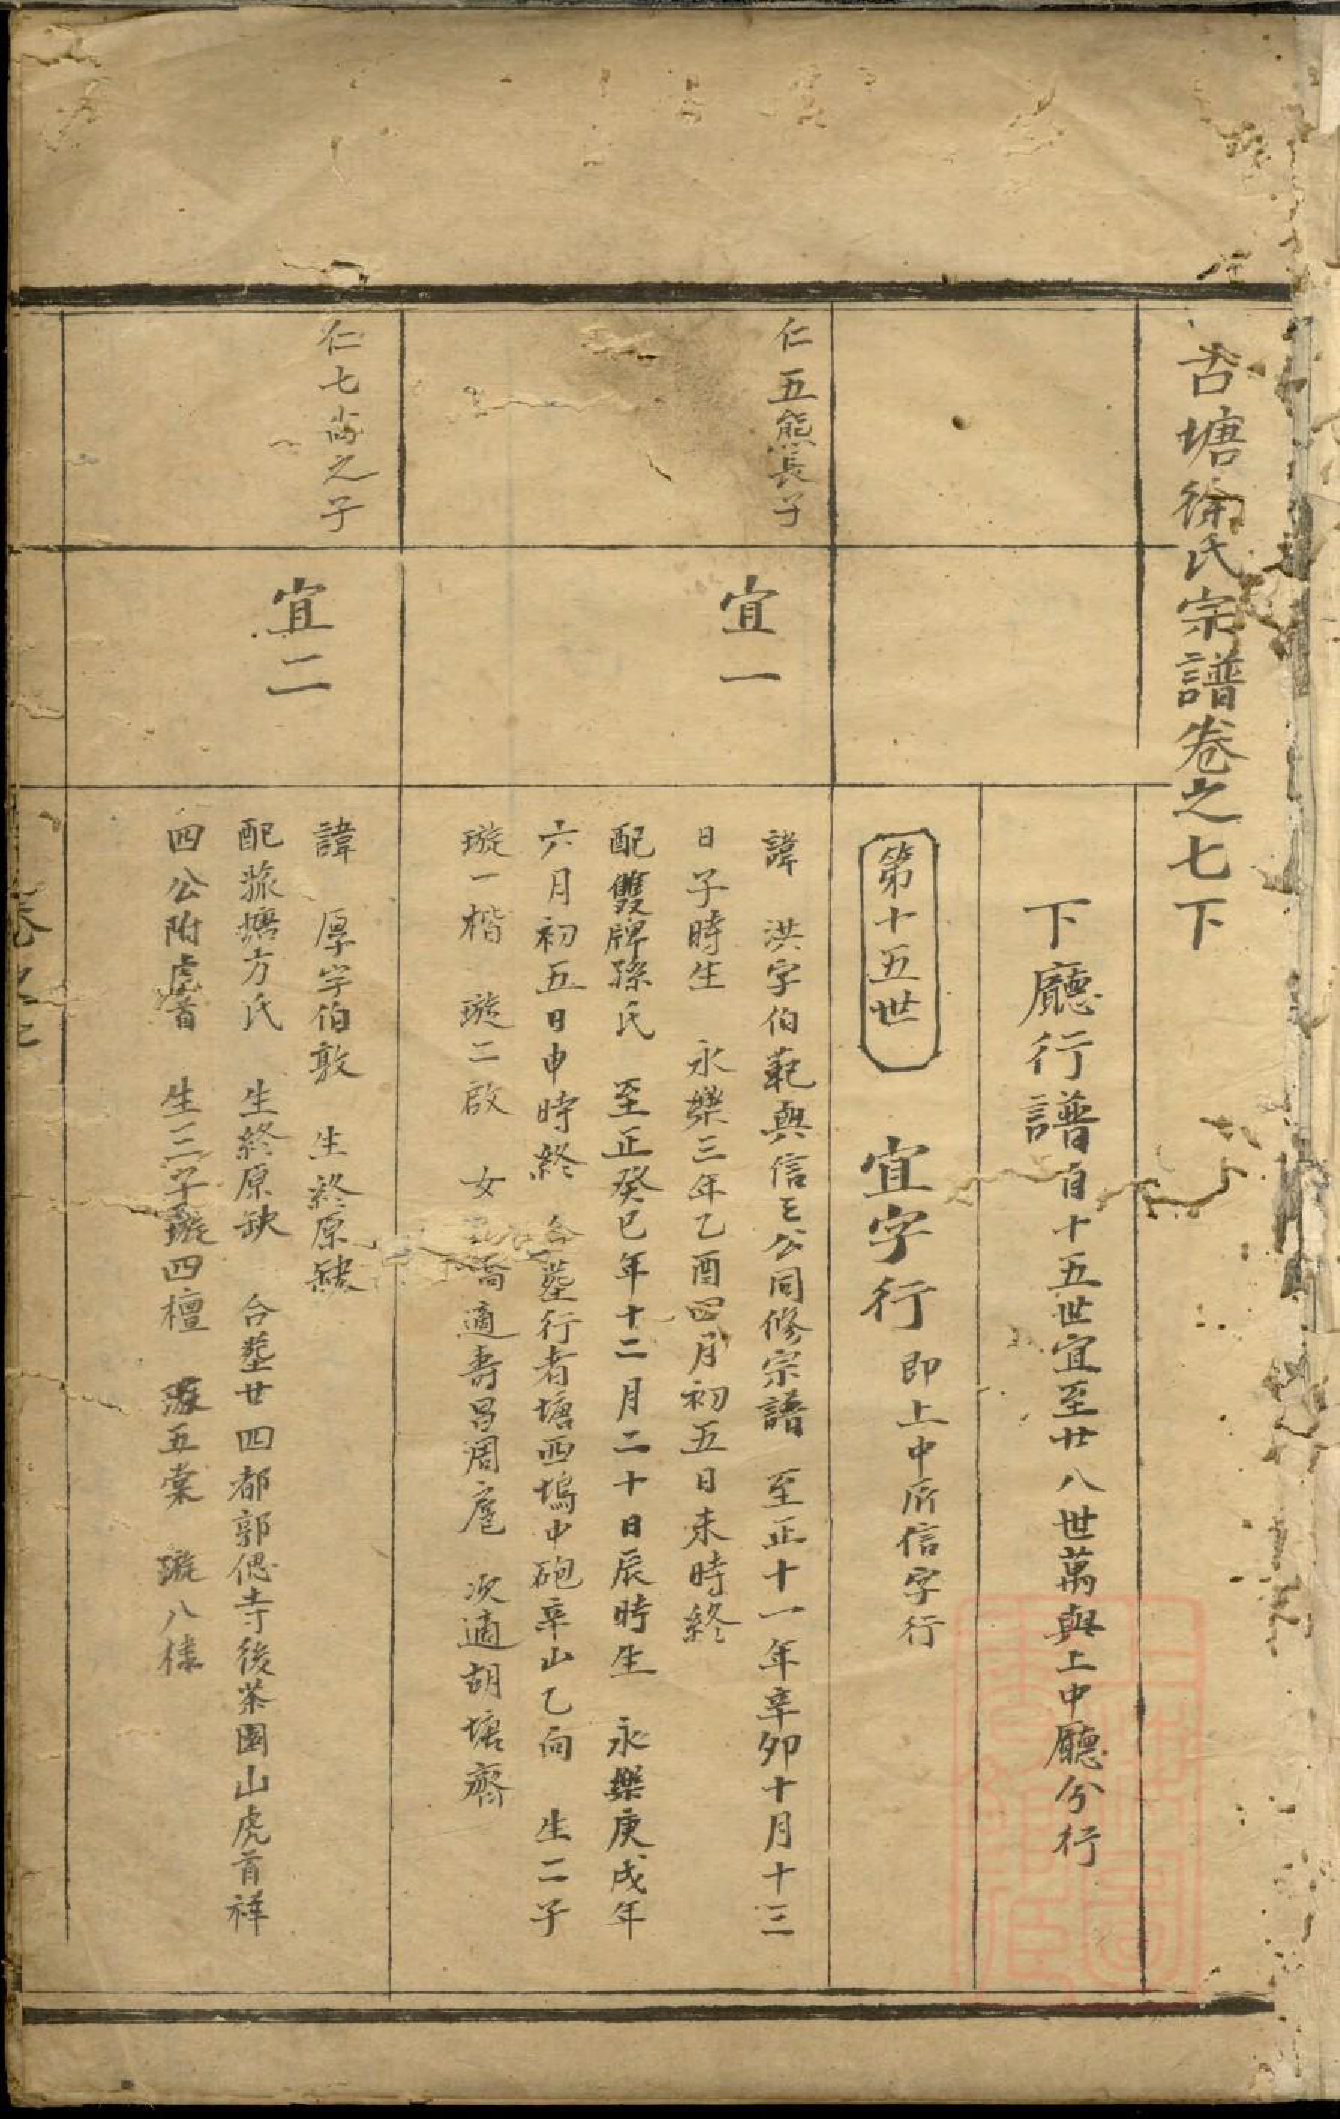 古塘徐氏宗譜卷之七下
下廳行譜自十五世宜至廿八世萬與上中廳分行
第十五世 宜字行 即上中所信字行
仁五熊長子
宜一
諱 洪字伯範與信三公同修宗譜 至正十一年辛卯十月十三
日子時生 永樂三年乙酉四月初五日未時終
配雙牌孫氏 至正癸巳年十二月二十日辰時生 永樂庚戌年
六月初五日申時終 合塟行者塘西塢中砲辛山乙向 生二子
璇一楷 璇二啟 女 適壽昌周 次適胡塘齋
仁七尚之子
宜二
諱 厚字伯敦 生終原缺
配 塘方氏 生終原缺 合塟廿四都郭偲寺後茶園山虎首祥
四公附處 生三子璇四檀 璇五棠 璇八様
卷之七